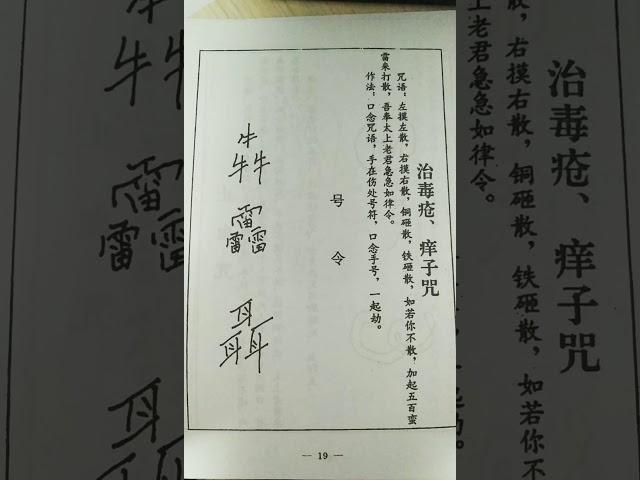 治毒疮、痒子咒
咒语：左摸左散，右摸右散，铜砸散，铁砸散，如若你不散，加起五百蛮
雷来打散，吾奉太上老君急急如律令。
作法：口念咒语，手在伤处号符，口念手号，一起劫。
号令
犇
靐
聶
— 19 —